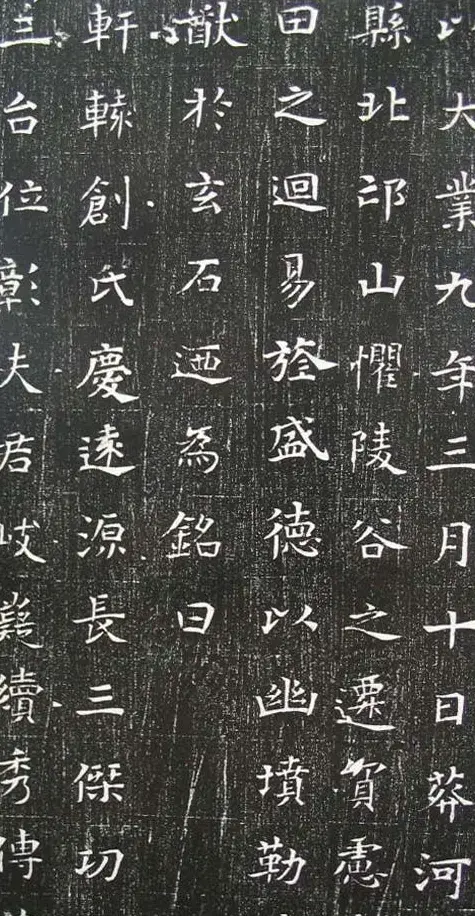 以大業九年三月十日葬河
縣北邙山懼陵谷之遷貿慮
田之迴易旌盛德以幽墳勒
猷於玄石迺為銘曰
軒轅創氏慶遠源長三傑功
三台位彰夫君岐嶷續秀傳